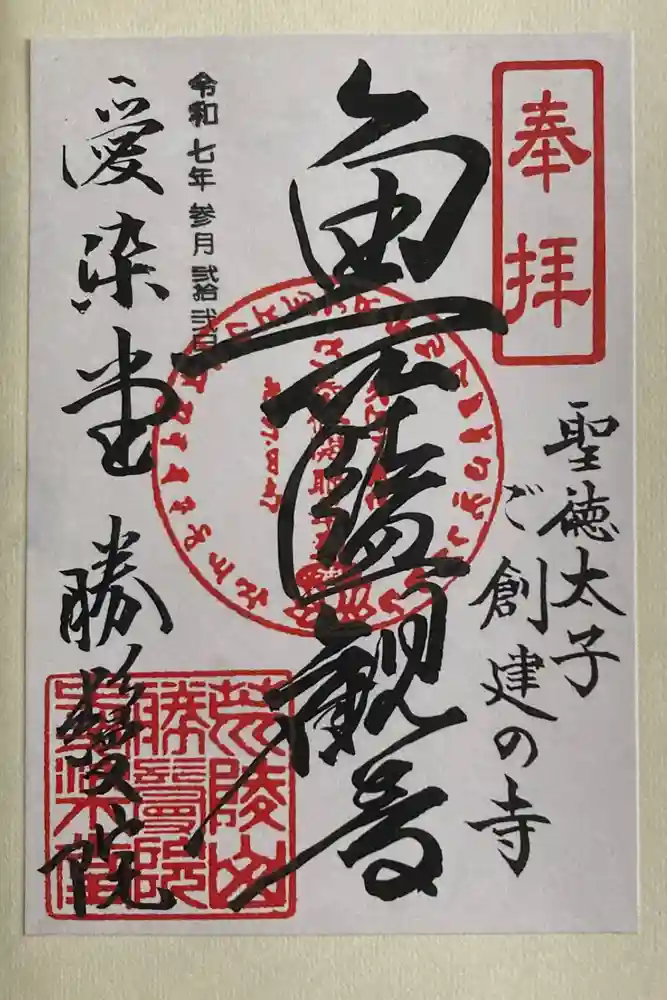 奉拝
聖徳太子
ご創建の寺
魚籃観音
令和七年 参月 弐拾弐日
愛染堂 勝鬘院
荒陵山
勝鬘院
愛染堂